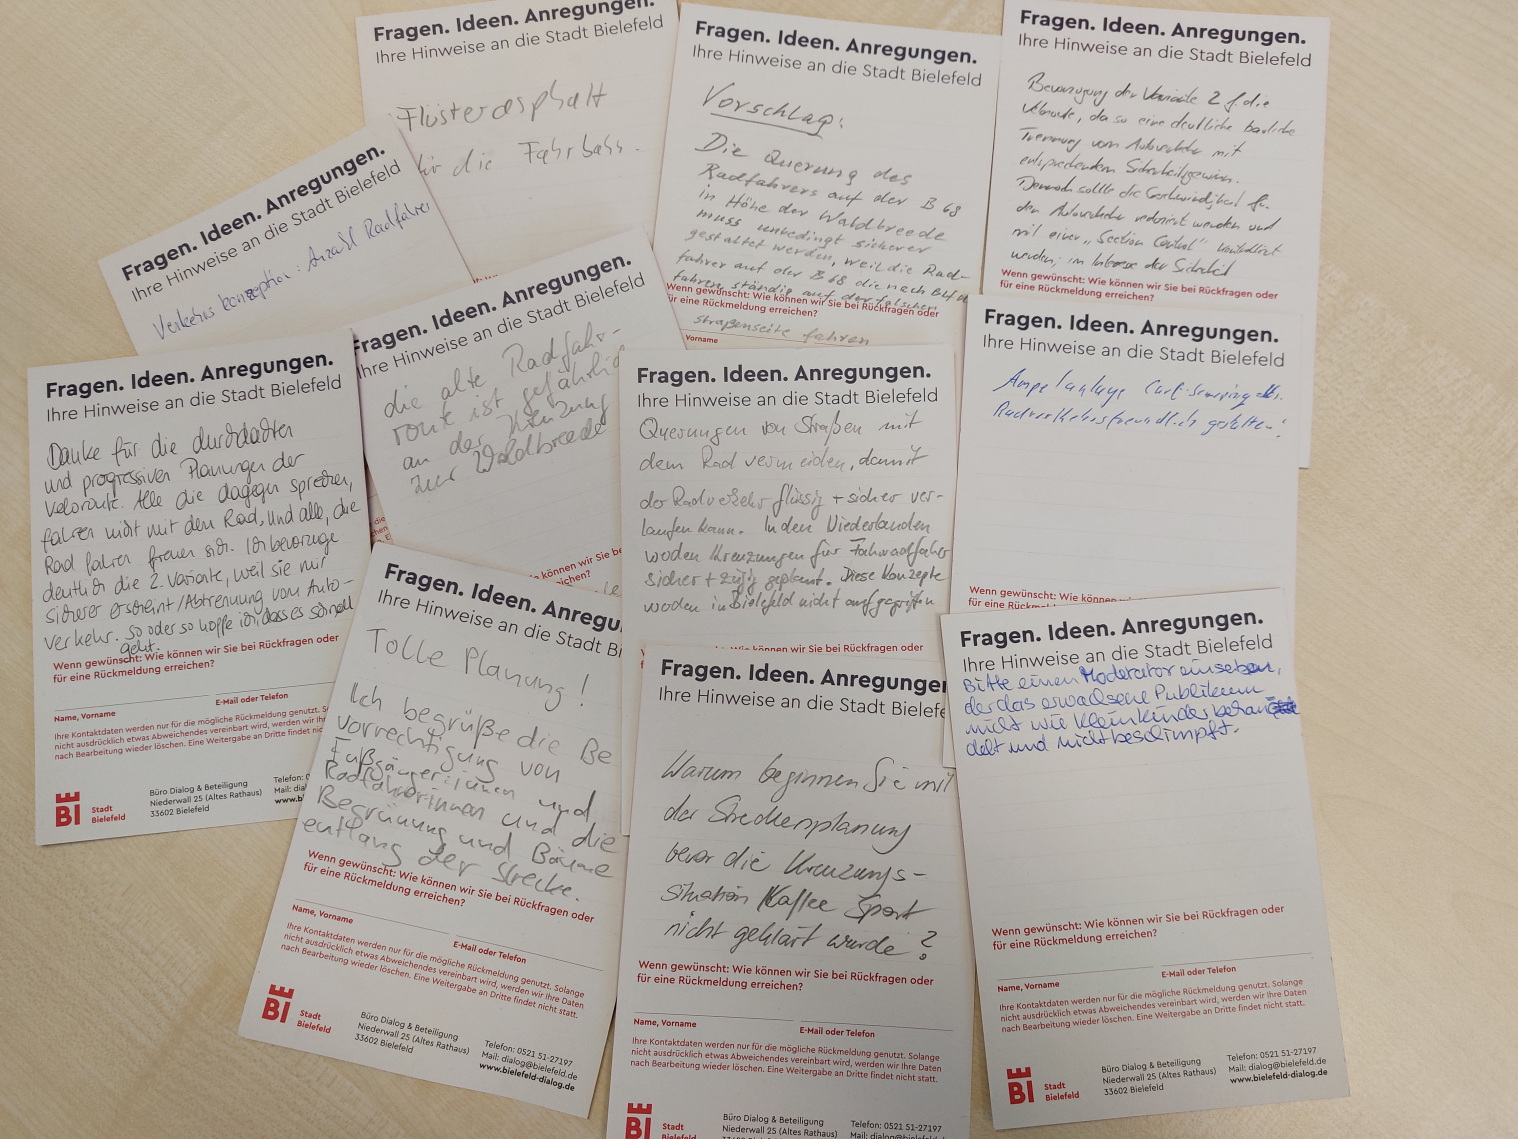 Fragen. Ideen. Anregungen.
Ihre Hinweise an die Stadt Bielefeld
Flüsterasphalt
für die Fahrbahn.
Fragen. Ideen. Anregungen.
Ihre Hinweise an die Stadt Bielefeld
Vorschlag:
Die Querung des
Radfahrers auf der B 68
in Höhe der Waldbreede
muss unbedingt sicherer
gestaltet werden, weil die Rad-
fahrer auf der B 68 die nach
fahren ständig auf der falschen
Wenn gewünscht: Wie können wir Sie bei Rückfragen oder
für eine Rückmeldung erreichen?
straßenseite fahren
Vorname
Fragen. Ideen. Anregungen.
Ihre Hinweise an die Stadt Bielefeld
Bevorzugung der Variante 2 f. die
Veloroute, da so eine deutliche bauliche
Trennung vom Autoverkehr mit
entsprechendem Sicherheitsgewinn.
Dennoch sollte die Geschwindigkeit für
den Autoverkehr reduziert werden und
mit einer „Section Control" kontrolliert
werden, im Interesse der Sicherheit
Wenn gewünscht: Wie können wir Sie bei Rückfragen oder
für eine Rückmeldung erreichen?
Fragen. Ideen. Anregungen.
Ihre Hinweise an die Stadt Bielefeld
Verkehrskonzeption: Anzahl Radfahrer
Fragen. Ideen. Anregungen.
Ihre Hinweise an die Stadt Bielefeld
die alte Radfahr-
route ist gefährlich
an der Kreuzung
zur Waldbreede
können wir Sie be
erreichen?
Fragen. Ideen. Anregungen.
Ihre Hinweise an die Stadt Bielefeld
Danke für die durchdachten
und progressiven Planungen der
Veloroute. Alle die dagegen sprechen,
fahren nicht mit dem Rad, und alle, die
Rad fahren freuen sich. Ich bevorzuge
deutlich die 2. Variante, weil sie mir
sicherer erscheint/Abtrennung vom Auto-
verkehr. So oder so hoffe ich, dass es schnell
geht.
Wenn gewünscht: Wie können wir Sie bei Rückfragen oder
für eine Rückmeldung erreichen?
Name, Vorname
E-Mail oder Telefon
Ihre Kontaktdaten werden nur für die mögliche Rückmeldung genutzt. S
nicht ausdrücklich etwas Abweichendes vereinbart wird, werden wir Ihre
nach Bearbeitung wieder löschen. Eine Weitergabe an Dritte findet nic
BI
Stadt
Bielefeld
Büro Dialog & Beteiligung
Niederwall 25 (Altes Rathaus)
33602 Bielefeld
Telefon: 0
Mail: dia
www.b
Fragen. Ideen. Anregungen.
Ihre Hinweise an die Stadt Bielefeld
Querungen von Straßen mit
dem Rad vermeiden, damit
der Radverkehr flüssig + sicher ver-
laufen kann. In den Niederlanden
werden Kreuzungen für Fahrradfahrer
sicher + zügig geplant. Diese Konzepte
werden in Bielefeld nicht aufgegriffen
Wenn gewünscht: Wie können wir Sie bei Rückfragen oder
Fragen. Ideen. Anregungen.
Ihre Hinweise an die Stadt Bielefeld
Ampelanlage
Radverkehrsfreundlich gestalten!
Wenn gewünscht: Wie können w
für eine Rückm
Fragen. Ideen. Anregu
Ihre Hinweise an die Stadt Bi
Tolle Planung!
Ich begrüße die Be
vorrechtigung von
Fußgänger:innen und
Radfahrerinnen und die
Begrünung und Bäume
entlang der Strecke.
Wenn gewünscht: Wie können wir Sie bei Rückfragen oder
für eine Rückmeldung erreichen?
Name, Vorname
E-Mail oder Telefon
Ihre Kontaktdaten werden nur für die mögliche Rückmeldung genutzt. Solange
nicht ausdrücklich etwas Abweichendes vereinbart wird, werden wir Ihre Daten
nach Bearbeitung wieder löschen. Eine Weitergabe an Dritte findet nicht statt.
BI
Stadt
Bielefeld
Büro Dialog & Beteiligung
Niederwall 25 (Altes Rathaus)
33602 Bielefeld
Telefon: 0521 51-27197
Mail: dialog@bielefeld.de
www.bielefeld-dialog.de
Fragen. Ideen. Anregungen
Ihre Hinweise an die Stadt Bielefe
Warum beginnen Sie mit
der Streckenplanung
bevor die Kreuzungs-
situation Kaffee Sport
nicht geklärt wurde?
Wenn gewünscht: Wie können wir Sie bei Rückfragen oder
für eine Rückmeldung erreichen?
Name, Vorname
E-Mail oder Telefon
Ihre Kontaktdaten werden nur für die mögliche Rückmeldung genutzt. Solange
nicht ausdrücklich etwas Abweichendes vereinbart wird, werden wir Ihre Daten
nach Bearbeitung wieder löschen. Eine Weitergabe an Dritte findet nicht statt.
BI
Stadt
Bielefeld
Büro Dialog & Beteiligung
Niederwall 25 (Altes Rathaus)
Telefon: 0521 51-27197
Mail: dialog@bielefeld
Fragen. Ideen. Anregungen.
Ihre Hinweise an die Stadt Bielefeld
Bitte einen Moderator einsetzen,
der das erwachsene Publikum
nicht wie Kleinkinder behan
delt und nicht beschimpft.
Wenn gewünscht: Wie können wir Sie bei Rückfragen oder
für eine Rückmeldung erreichen?
Name, Vorname
E-Mail oder Telefon
Ihre Kontaktdaten werden nur für die mögliche Rückmeldung genutzt. Solange
nicht ausdrücklich etwas Abweichendes vereinbart wird, werden wir Ihre Daten
nach Bearbeitung wieder löschen. Eine Weitergabe an Dritte findet nicht statt.
BI
Stadt
Bielefeld
Büro Dialog & Beteiligung
Niederwall 25 (Altes Rathaus)
33602 Bielefeld
Telefon: 0521 51-27197
Mail: dialog@bielefeld.de
www.bielefeld-dialog.de